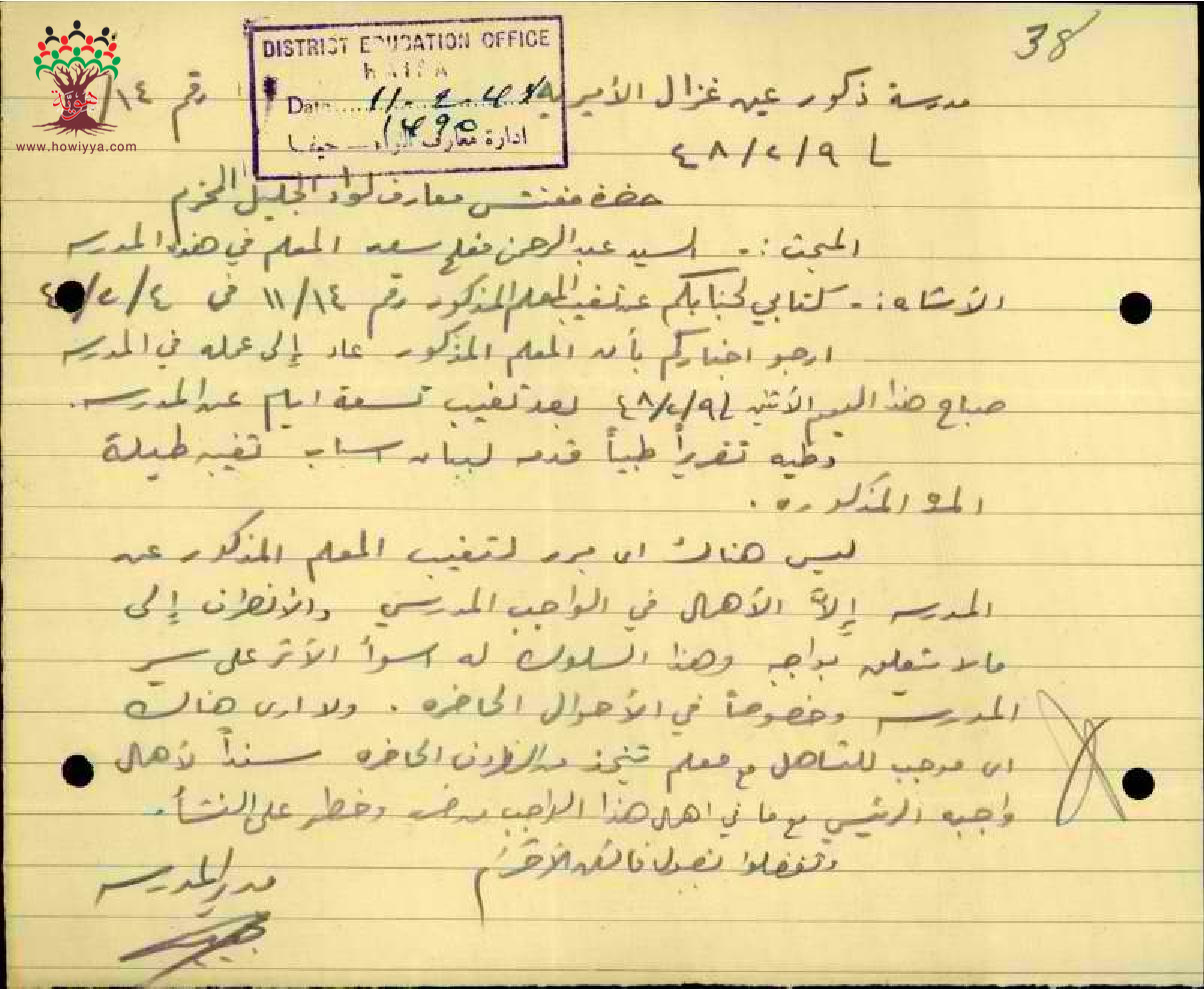 38
DISTRICT EDUCATION OFFICE
HAIFA
Date 11-2-48
1490
ادارة معارف اللواء — حيفا
هوية
www.howiyya.com
مدرسة ذكور عين غزال الأميرية رقم ١٤/
٤٨/٢/٩
حضرة مفتش معارف لواء الجليل المحترم
المبحث :- السيد عبد الرحمن مفلح سعد المعلم في هذه المدرسه
الأشاره :- كتابي لجنابكم عن تغيب المعلم المذكور رقم ١١/١٤ في ٤/٢/
ارجو اخباركم بأن المعلم المذكور عاد إلى عمله في المدرسه
صباح هذا اليوم الأثنين ٤٨/٢/٩ بعد تغيب تسعة ايام عن المدرسه.
وطيه تقريراً طبياً قدمه لبيان اسباب تغيبه طيلة
المدة المذكوره .
ليس هناك اى مبرر لتغيب المعلم المذكور عن
المدرسه إلاّ الأهمال في الواجب المدرسي والأنصراف إلى
مالا يتعلق بواجبه وهذا السلوك له اسوأ الأثر على سير
المدرسه وخصوصاً في الأحوال الحاضره . ولا ارى هناك
اى موجب للتساهل مع معلم يتخذ من الظروف الحاضره سنداً لأهمال
واجبه الرئيسي مع ما في اهمال هذا الواجب من ضرر وخطر على النشأ.
وتفضلوا بقبول فائق الأحترام
مدير المدرسه